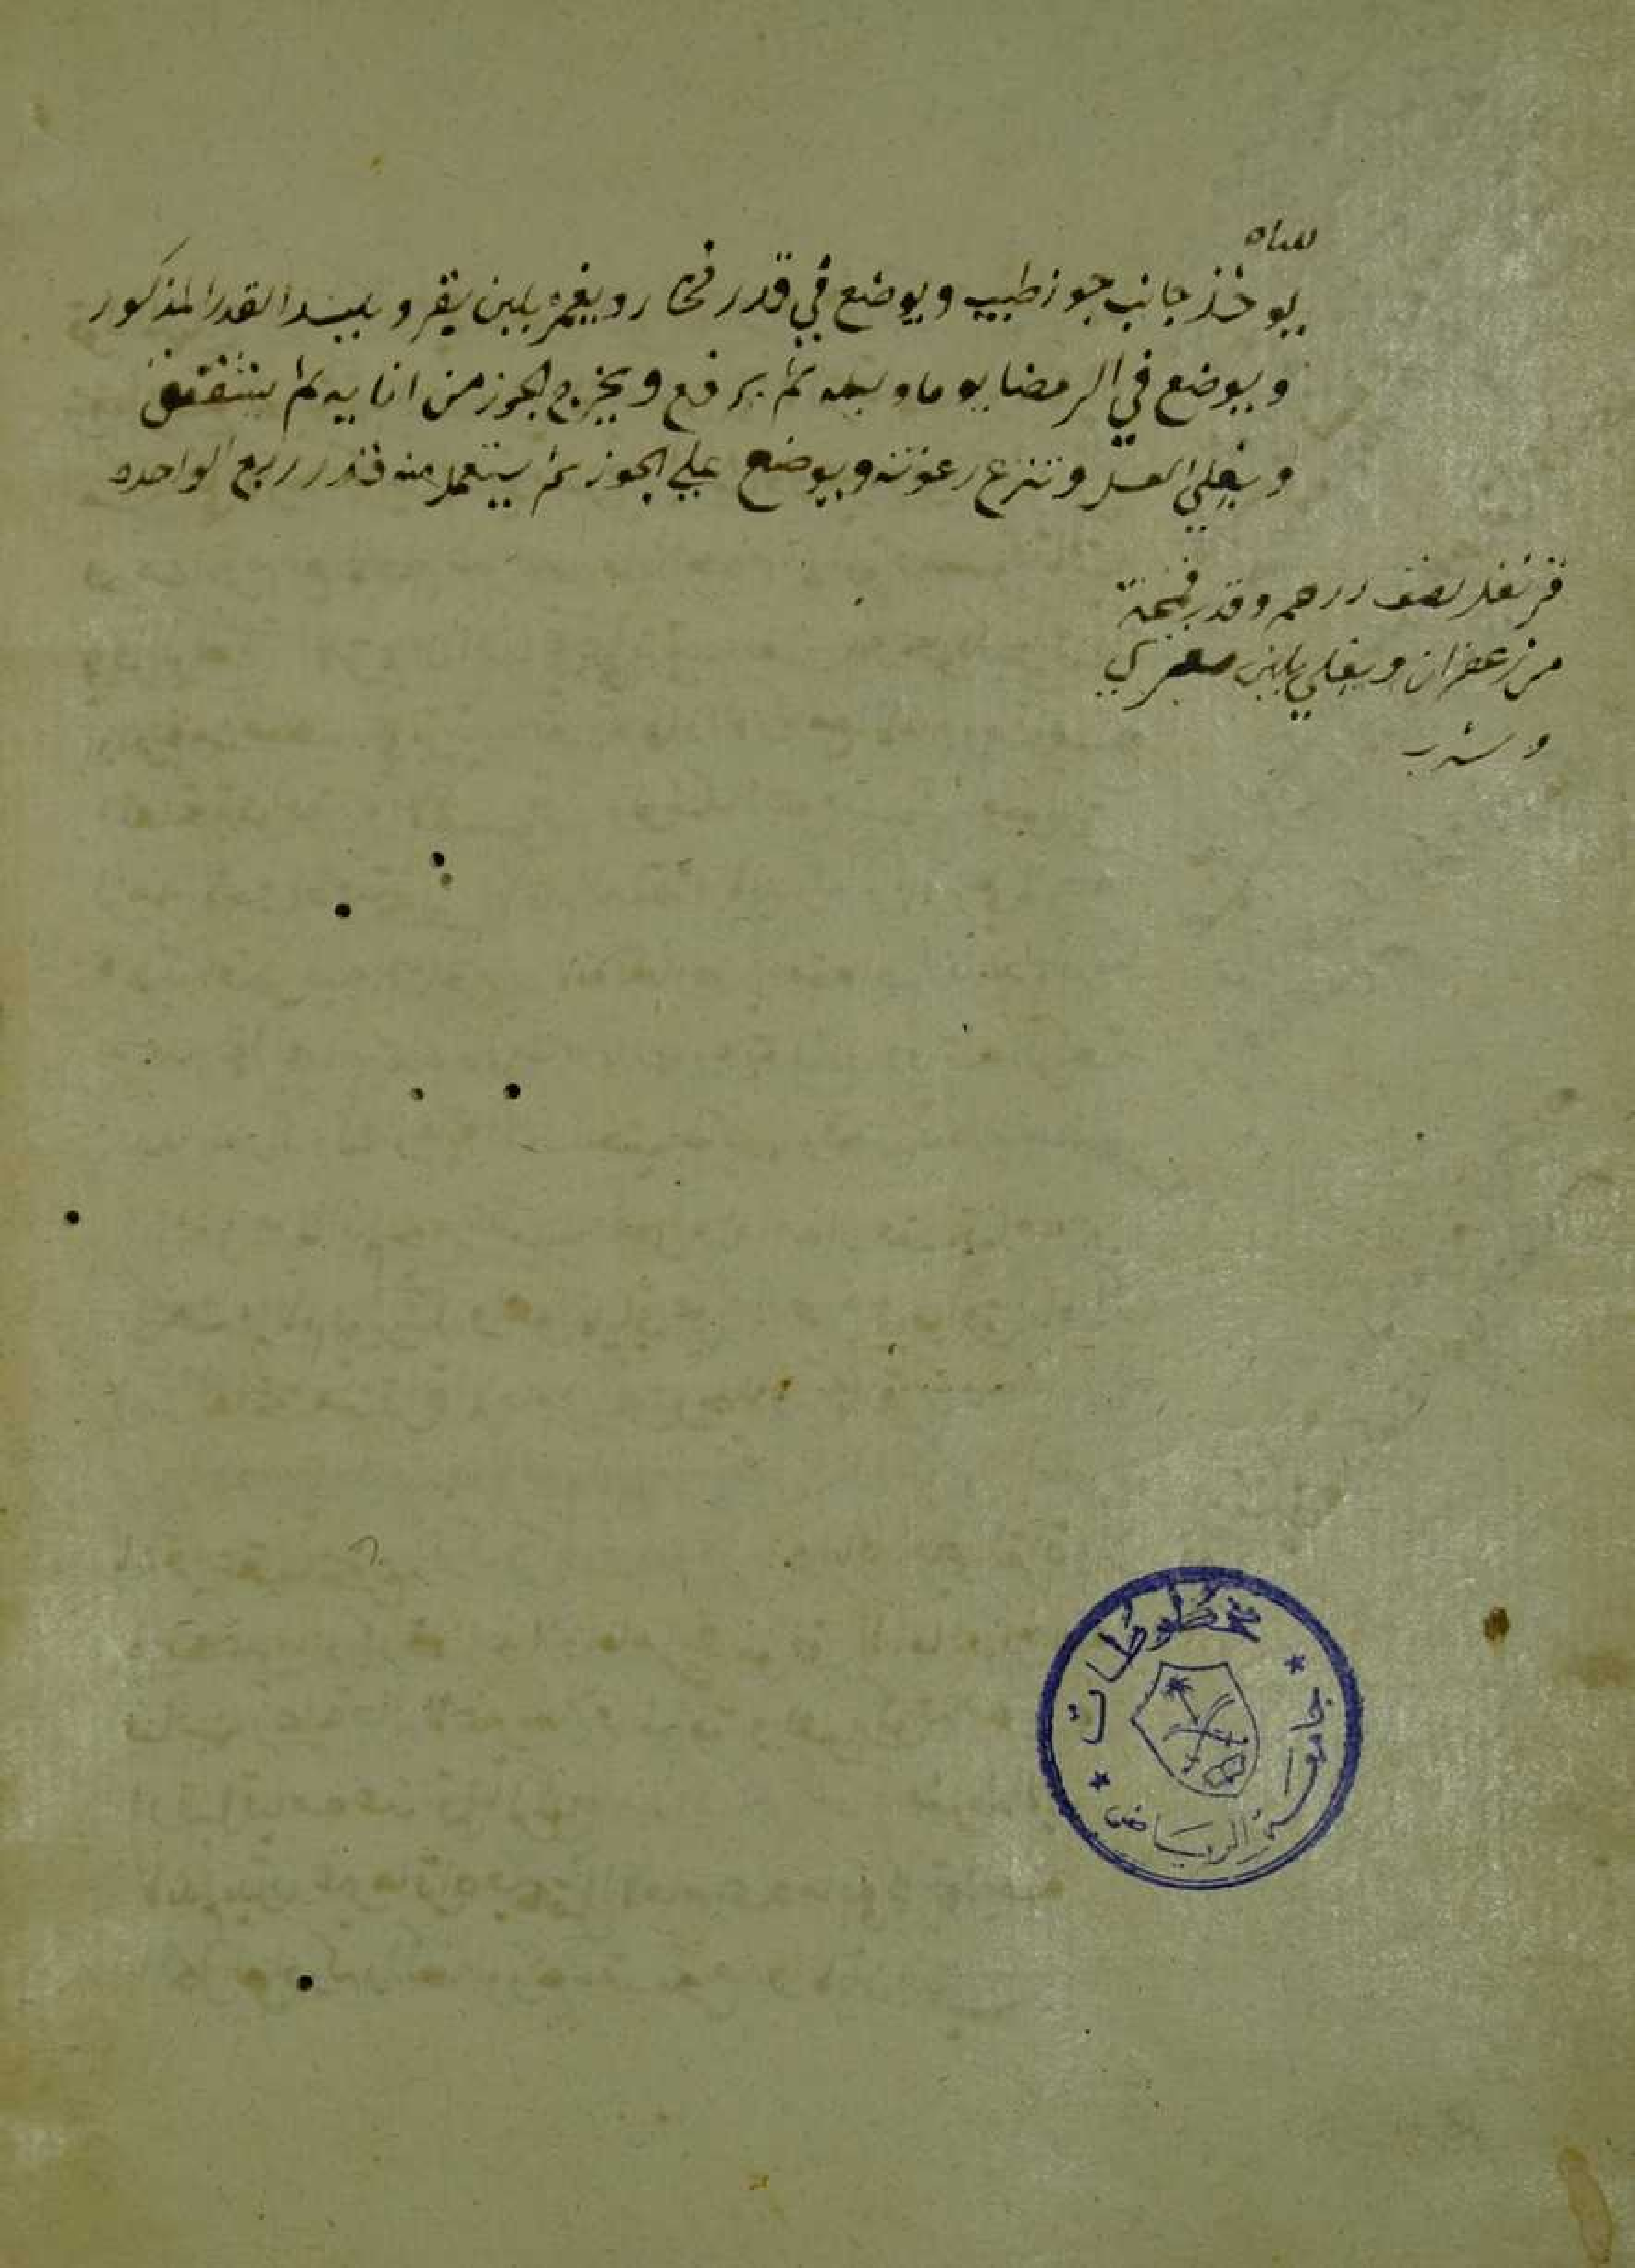 للباه
يوخذ جانب جوز طيب ويوضع في قدر فخار ويغمر بلبن بقر ويسد القدر المذكور
ويوضع في الرمضا يوما وليله ثم يرفع ويخرج الجوز من انايه ثم
ويغلي العسل وتنزع رغوته ويوضع علي الجوز ثم يستعمل منه قدر ربع الواحده
قرنفل نصف درهم وقدر قمحة
من زعفران ويغلي بلبن معزي
ويشرب
مخطوطات
جامعة الرياض